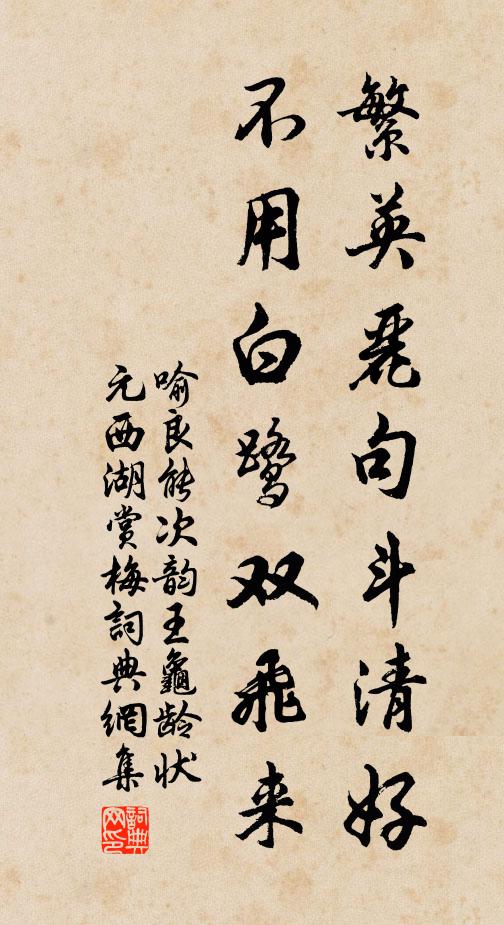 繁英麗句斗清好
不用白鹭双飛来
喻良能次韵王龜龄状
元西湖赏梅詞典網集
詞典网印